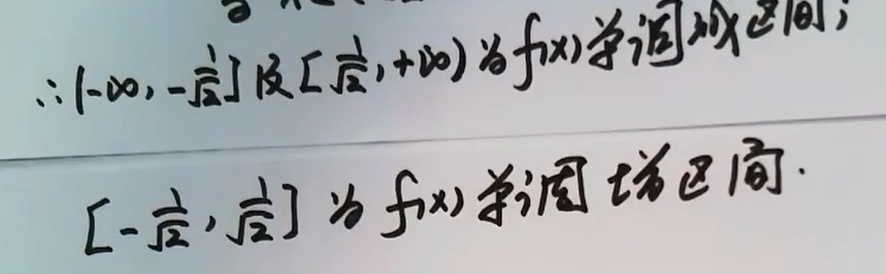 ∴(-∞, -1/√2]及[1/√2, +∞)为f(x)单调减区间;
[-1/√2, 1/√2]为f(x)单调增区间.